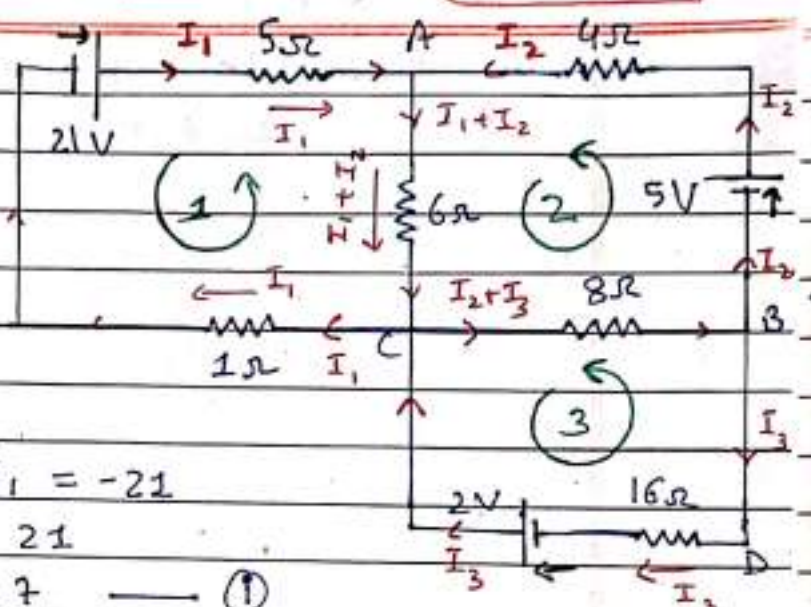 I₁ 5Ω A I₂ 4Ω
I₂
21V I₁ I₁+I₂
1 I₁+I₂ 6Ω 2 5V
I₁ I₂+I₃ 8Ω I₂
1Ω I₁ C B
3 I₃
₁ = -21 2V 16Ω
21
I₃ D
7 —— ①